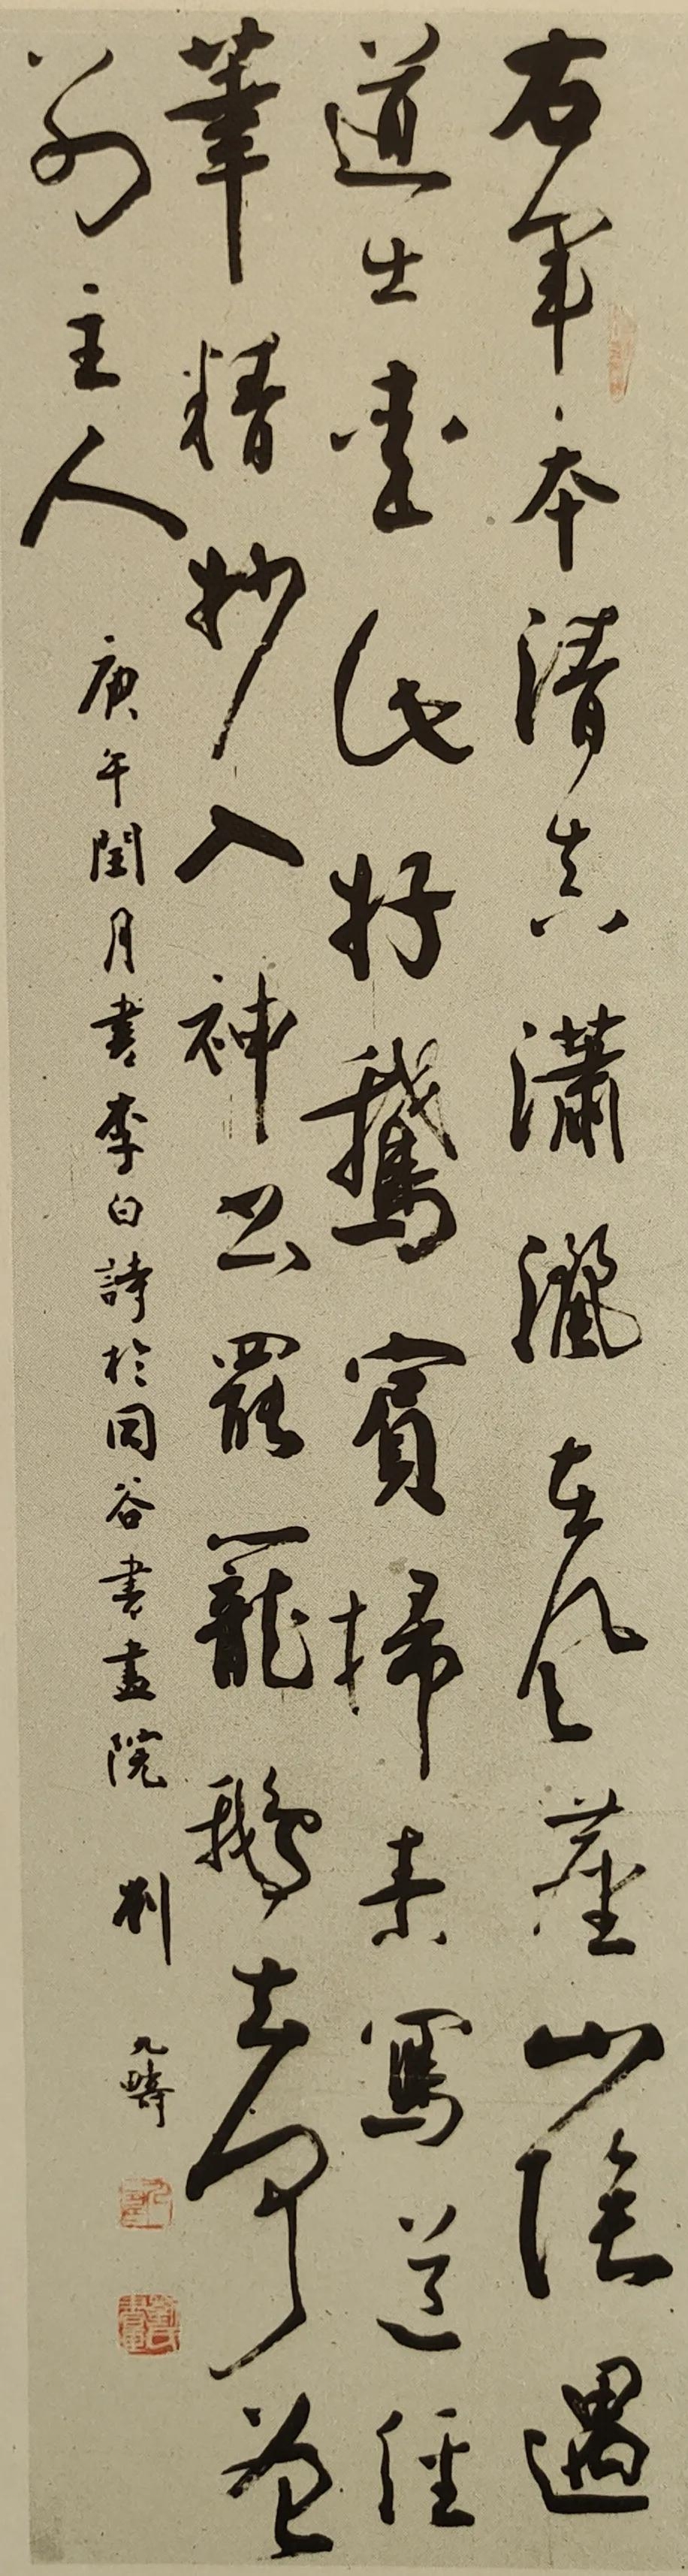 右軍本清真瀟灑在風塵山陰遇
道士愛此好鵝賓掃素寫道經
筆精妙入神書罷籠鵝去何曾
別主人
庚午閏月書李白詩於同谷書畫院 劉九疇